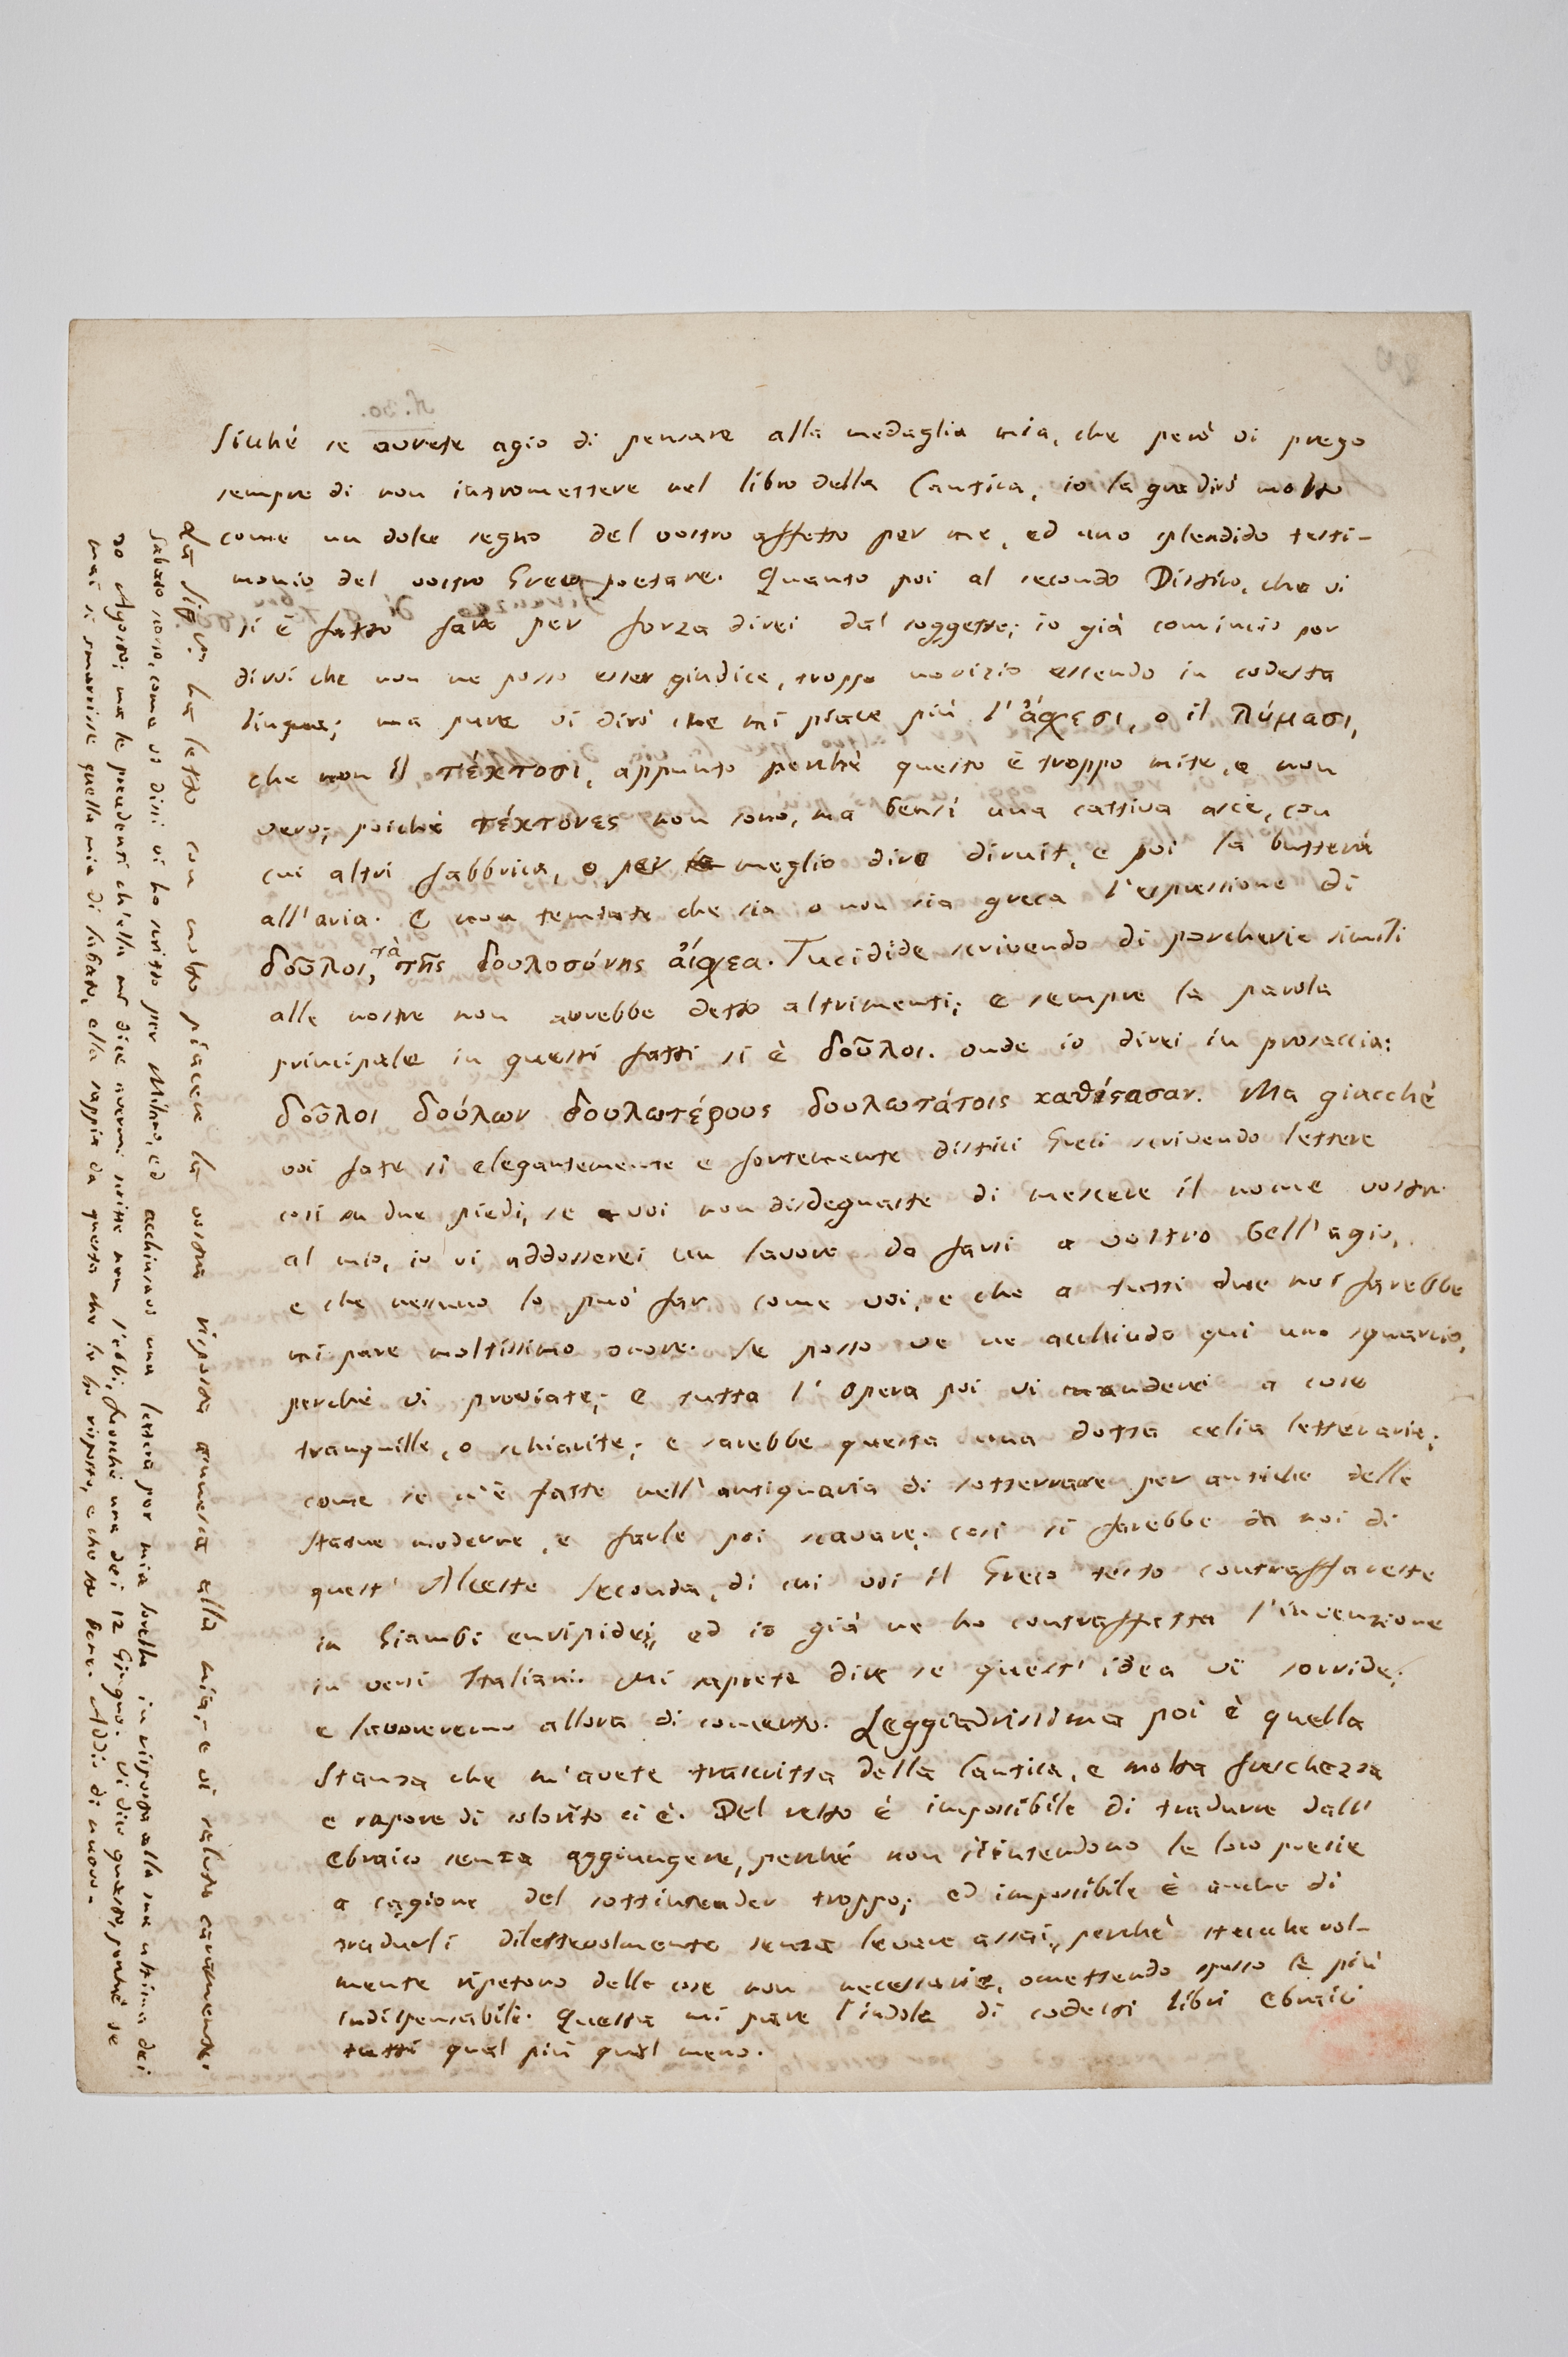 Sicché se avrete agio di pensare alla medaglia mia, che però vi prego
sempre di non intromettere nel libro della Cantica, io la gradirò molto
come un dolce segno del vostro affetto per me, ed uno splendido testi-
monio del vostro Greco poetare. Quanto poi al secondo Distico, che vi
si è fatto fare per forza direi dal soggetto; io già comincio por
dirvi che non ne posso esser giudice, troppo novizio essendo in codesta
lingua; ma pure vi dirò che mi piace più l'ἄχεσι, o il πύμασι,
che non il τέκτοσι, appunto perchè questo è troppo mite, e non
vero; poichè τέκτονες non sono, ma bensì una cattiva ascie, con
cui altri fabbrica, o per meglio dire diruit, e poi la butterà
all'aria. E non temiate che sia o non sia greca l'espressione di
δοῦλοι, τὰ τῆς δουλοσύνης αἴσχεα. Tucidide scrivendo di porcherie simili
alle nostre non avrebbe detto altrimenti; e sempre la parola
principale in questi fatti si è δοῦλοι. onde io direi in prosaccia:
δοῦλοι δούλων δουλωτέρους δουλωτάτοις καθίστασαν. Ma giacchè
voi fate sì elegantemente e fortemente distici Greci scrivendo lettere
così su due piedi, se a voi non disdegnaste di mescere il nome vostro
al mio, io vi addosserei un lavoro da farsi a vostro bell'agio,
e che nessuno lo può far come voi, e che a tutti due noi farebbe
mi pare moltissimo onore. Se posso ve ne acchiudo qui uno squarcio,
perchè vi proviate; e tutta l'opera poi vi manderei a cose
tranquille, o schiarite; e sarebbe questa una dotta celia letteraria;
come se n'è fatte nell'antiquaria di sotterrare per antiche delle
statue moderne, e farle poi scavare. così si farebbe da noi di
quest'Alceste Seconda, di cui voi il Greco testo contraffareste
in Giambi euripidei, ed io già ne ho contraffatta l'invenzione
in versi Italiani. Mi saprete dire se quest'idea vi sorride;
e lavoreremo allora di concerto. Leggiadrissima poi è quella
Stanza che m'avete trascritta della Cantica, e molta freschezza
e sapore di colorito ci è. Del resto è impossibile di tradurre dall'
Ebraico senza aggiungere, perchè non s'intendono le loro poesie
a cagione del sottintender troppo; ed impossibile è anche di
tradurli dilettevolmente senza levare assai, perchè stucchevol-
mente ripetono delle cose non necessarie, omettendo spesso le più
indispensabili. Questa mi pare l'indole di codesti libri Ebraici
tutti qual più qual meno.
La Sig.ra ha letto con molto piacere la vostra risposta annessa alla mia, e vi saluta caramente.
Sabato scorso, come vi dissi vi ho scritto per Milano, ed acchiusavi una lettera per mia sorella in risposta alla sua ultima dei
20 Agosto; ma le precedenti ch'ella mi dice avermi scritte non l'ebbi, fuorchè una dei 12 Giugno. Vi dico questo, perchè se
mai si smarrisse quella mia di sabato, ella sappia da questa che le ho risposto, e che sto bene. Addio di nuovo.
N. 30.